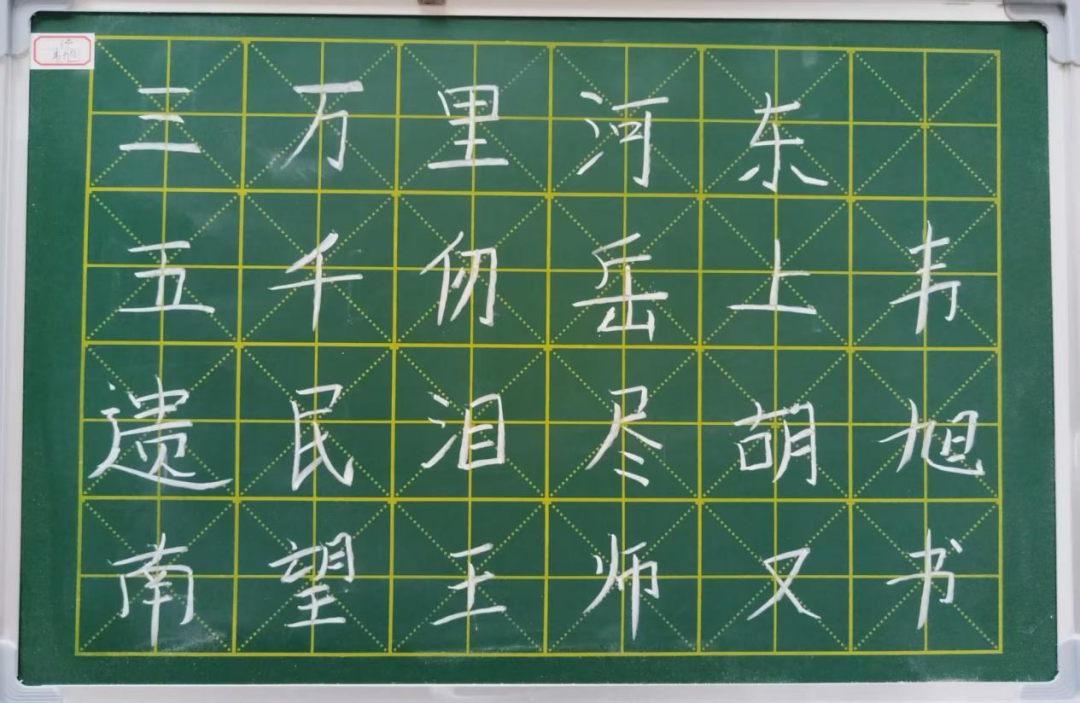 三万里河东
五千仞岳上韦
遗民泪尽胡旭
南望王师又书